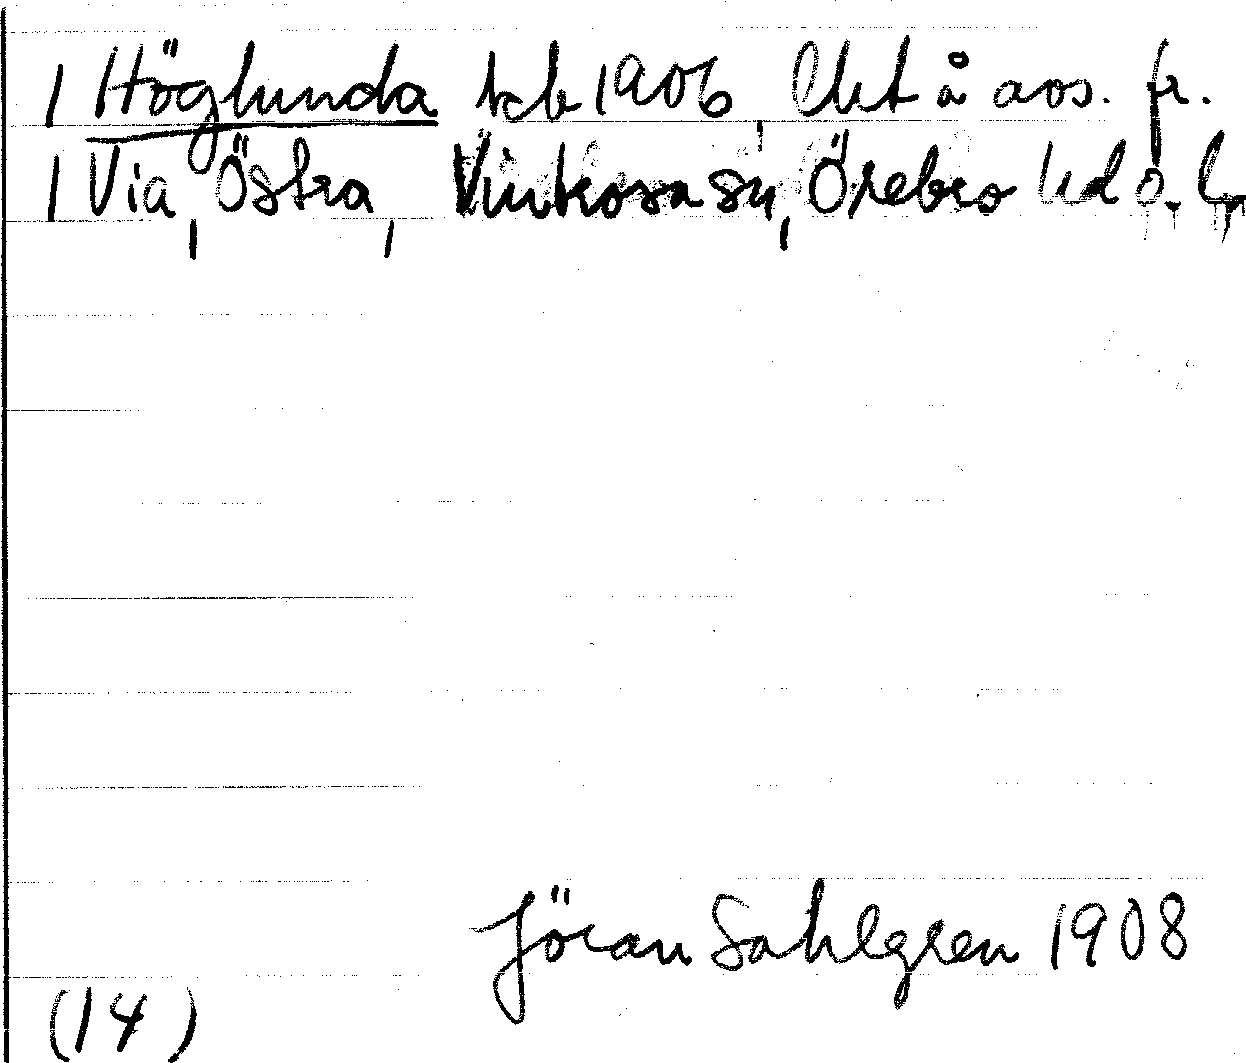 1 Höglunda kb 1906, Lht å avs. fr.
1 Via, Östra, Vintrosa sn, Örebro hd o. l.
Jöran Sahlgren 1908
(14)